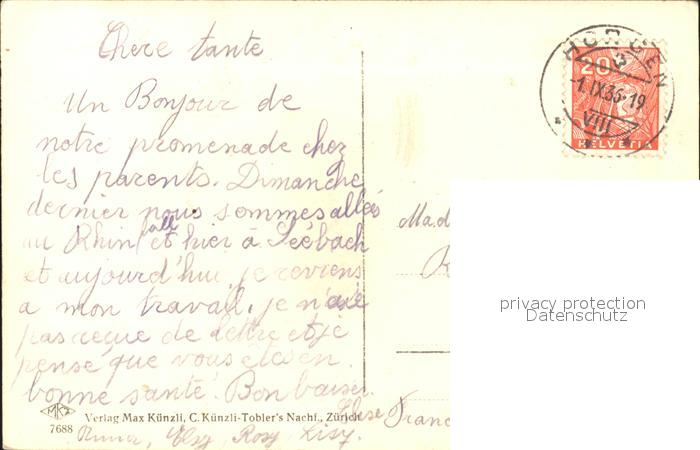 Chère tante
Un Bonjour de
notre promenade chez
les parents. Dimanche
dernier nous sommes allées
au Rhin all et hier à Seebach
et aujourd'hui je reviens
a mon travail. je n'ai
pas reçue de lettre et je
pense que vous etes en
bonne santé. Bon baiser
Elsy, Rosy, Lisy.
HORGEN
3
-1.IX.36-19
VIII
20
HELVETIA
Mad
Franc
privacy protection
Datenschutz
MKZ
Verlag Max Künzli, C. Künzli-Tobler's Nachf., Zürich
7688